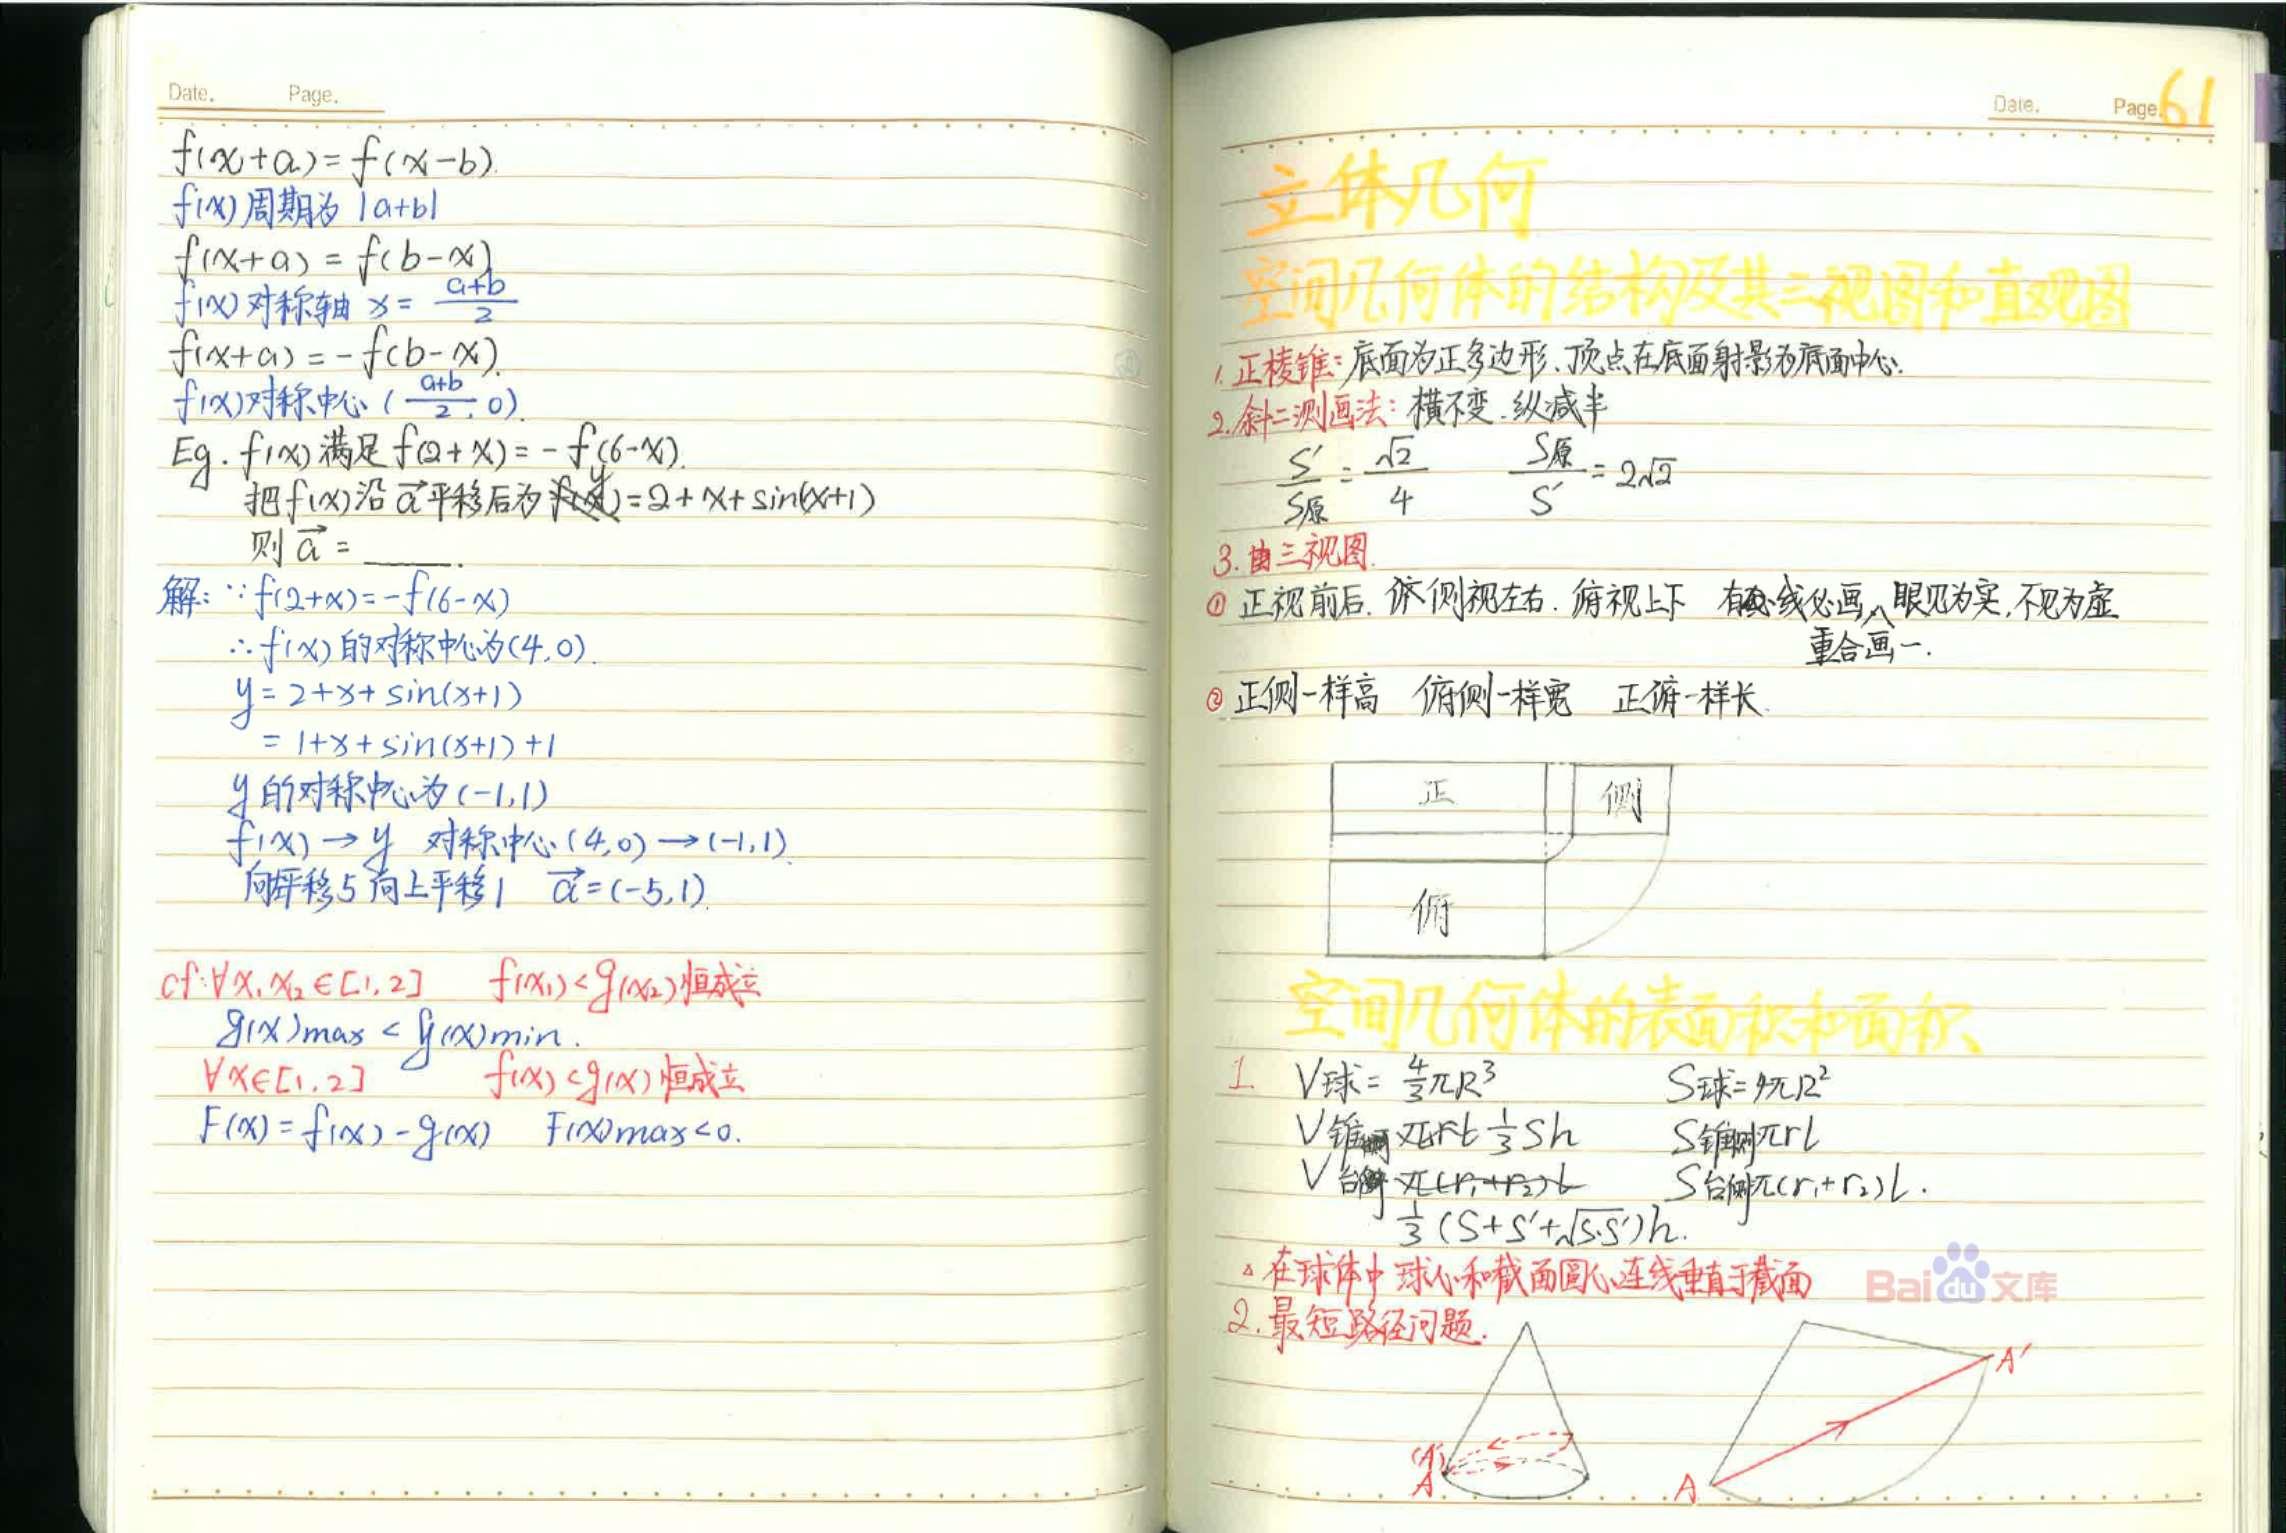 Date. Page.
f(x+a)=f(x-b).
f(x)周期为 |a+b|
f(x+a)=f(b-x)
f(x)对称轴 x= (a+b)/2
f(x+a)=-f(b-x).
f(x)对称中心((a+b)/2, 0).
Eg. f(x)满足f(2+x)=-f(6-x).
把f(x)沿a⃗平移后为y=2+x+sin(x+1)
则a⃗=____.
解:∵f(2+x)=-f(6-x)
∴f(x)的对称中心为(4,0).
y=2+x+sin(x+1)
=1+x+sin(x+1)+1
y的对称中心为(-1,1)
f(x)→y 对称中心(4,0)→(-1,1).
向左平移5向上平移1 a⃗=(-5,1).
cf:∀x₁x₂∈[1,2] f(x₁)<g(x₂)恒成立
g(x)max<g(x)min.
∀x∈[1,2] f(x)<g(x)恒成立
F(x)=f(x)-g(x) F(x)max<0.
Date. Page. 61
立体几何
空间几何体的结构及其三视图和直观图
1.正棱锥:底面为正多边形、顶点在底面射影为底面中心.
2.斜二测画法:横不变.纵减半
S′/S原=√2/4 S原/S′=2√2
3.由三视图.
① 正视前后.侧视左右.俯视上下 有线必画、眼见为实,不见为虚
重合画一.
② 正侧一样高 俯侧一样宽 正俯一样长.
正 侧
俯
空间几何体的表面积和面积
1. V球=4/3πR³ S球=4πR²
V锥 1/3Sh S锥侧πrl
V台 π(r₁+r₂)l S台侧π(r₁+r₂)l.
1/3(S+S′+√S·S′)h.
△在球体中球心和截面圆心连线垂直于截面
Bai du 文库
2.最短路径问题.
A′
(A′)
A A